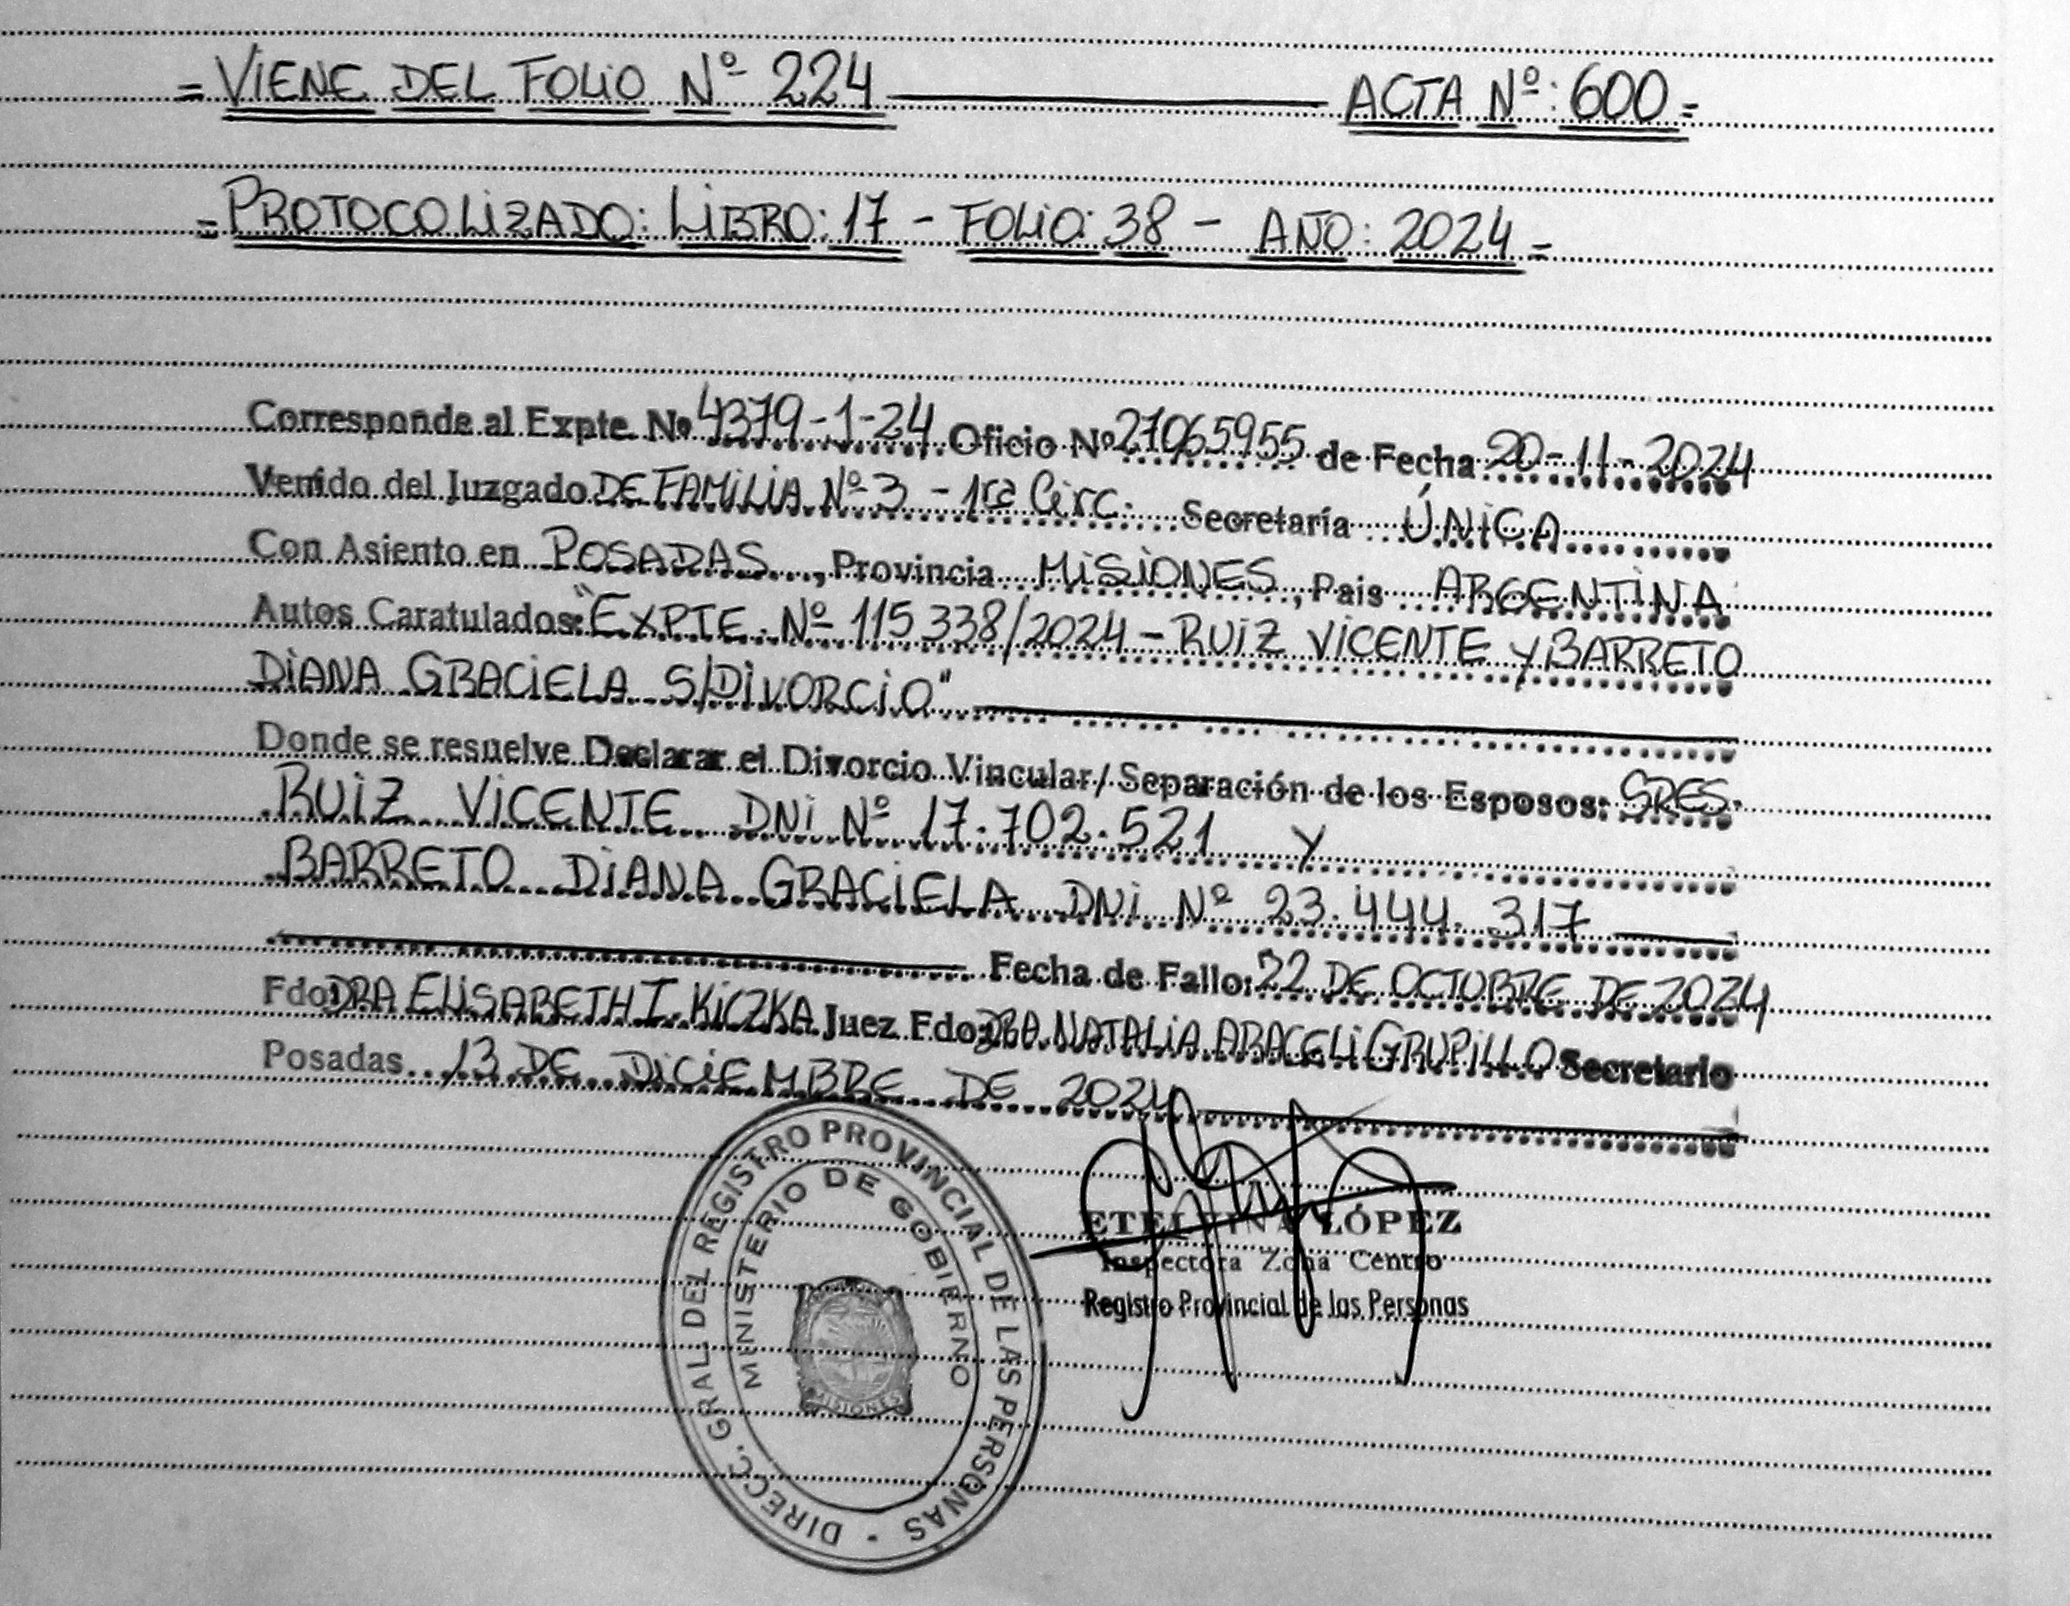 = VIENE DEL FOLIO Nº 224 ——— ACTA Nº: 600 =
= PROTOCOLIZADO: LIBRO: 17 - FOLIO: 38 - AÑO: 2024 =
Corresponde al Expte Nº 4379-1-24 Oficio Nº 27065955 de Fecha 20-11-2024
Venido del Juzgado DE FAMILIA Nº 3 - 1ra Circ. Secretaría ÚNICA
Con Asiento en POSADAS, Provincia MISIONES, Pais ARGENTINA
Autos Caratulados: "EXPTE. Nº 115338/2024 - RUIZ VICENTE Y BARRETO
DIANA GRACIELA S/DIVORCIO"
Donde se resuelve Declarar el Divorcio Vincular/Separación de los Esposos: SRES.
RUIZ VICENTE DNI Nº 17.702.521 Y
BARRETO DIANA GRACIELA DNI Nº 23.444.317
Fecha de Fallo: 22 DE OCTUBRE DE 2024
Fdo: DRA ELISABETH I. KICZKA Juez Fdo: DRA. NATALIA ARACELI GRUPILLO Secretario
Posadas 13 DE DICIEMBRE DE 2024
DIRECC. GRAL. DEL REGISTRO PROVINCIAL DE LAS PERSONAS -
MINISTERIO DE GOBIERNO
MISIONES
ETELVINA LÓPEZ
Inspectora Zona Centro
Registro Provincial de las Personas